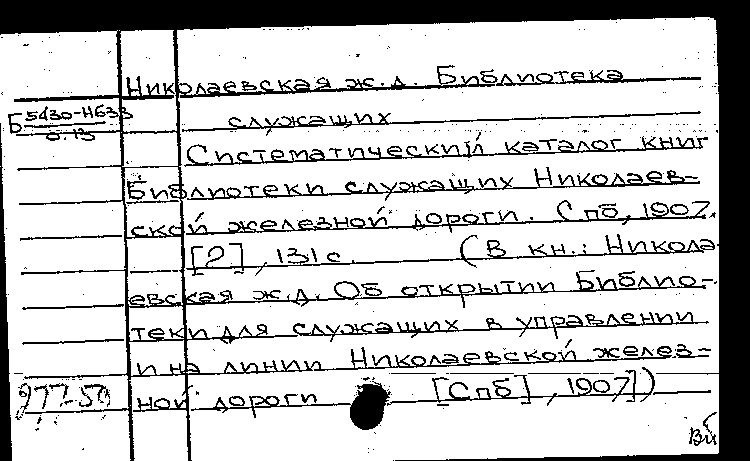 Николаевская ж.д. Библиотека
служащих
Б 5430-Н633
0.13
Систематический каталог книг
Библиотеки служащих Николаев=
ской железной дороги. Спб, 1907.
[2], 131 с. (В кн.: Никола-
евская ж.д. Об открытии Библио-
теки для служащих в управлении
и на линии Николаевской желез=
ной дороги [Спб], 1907])
277-50